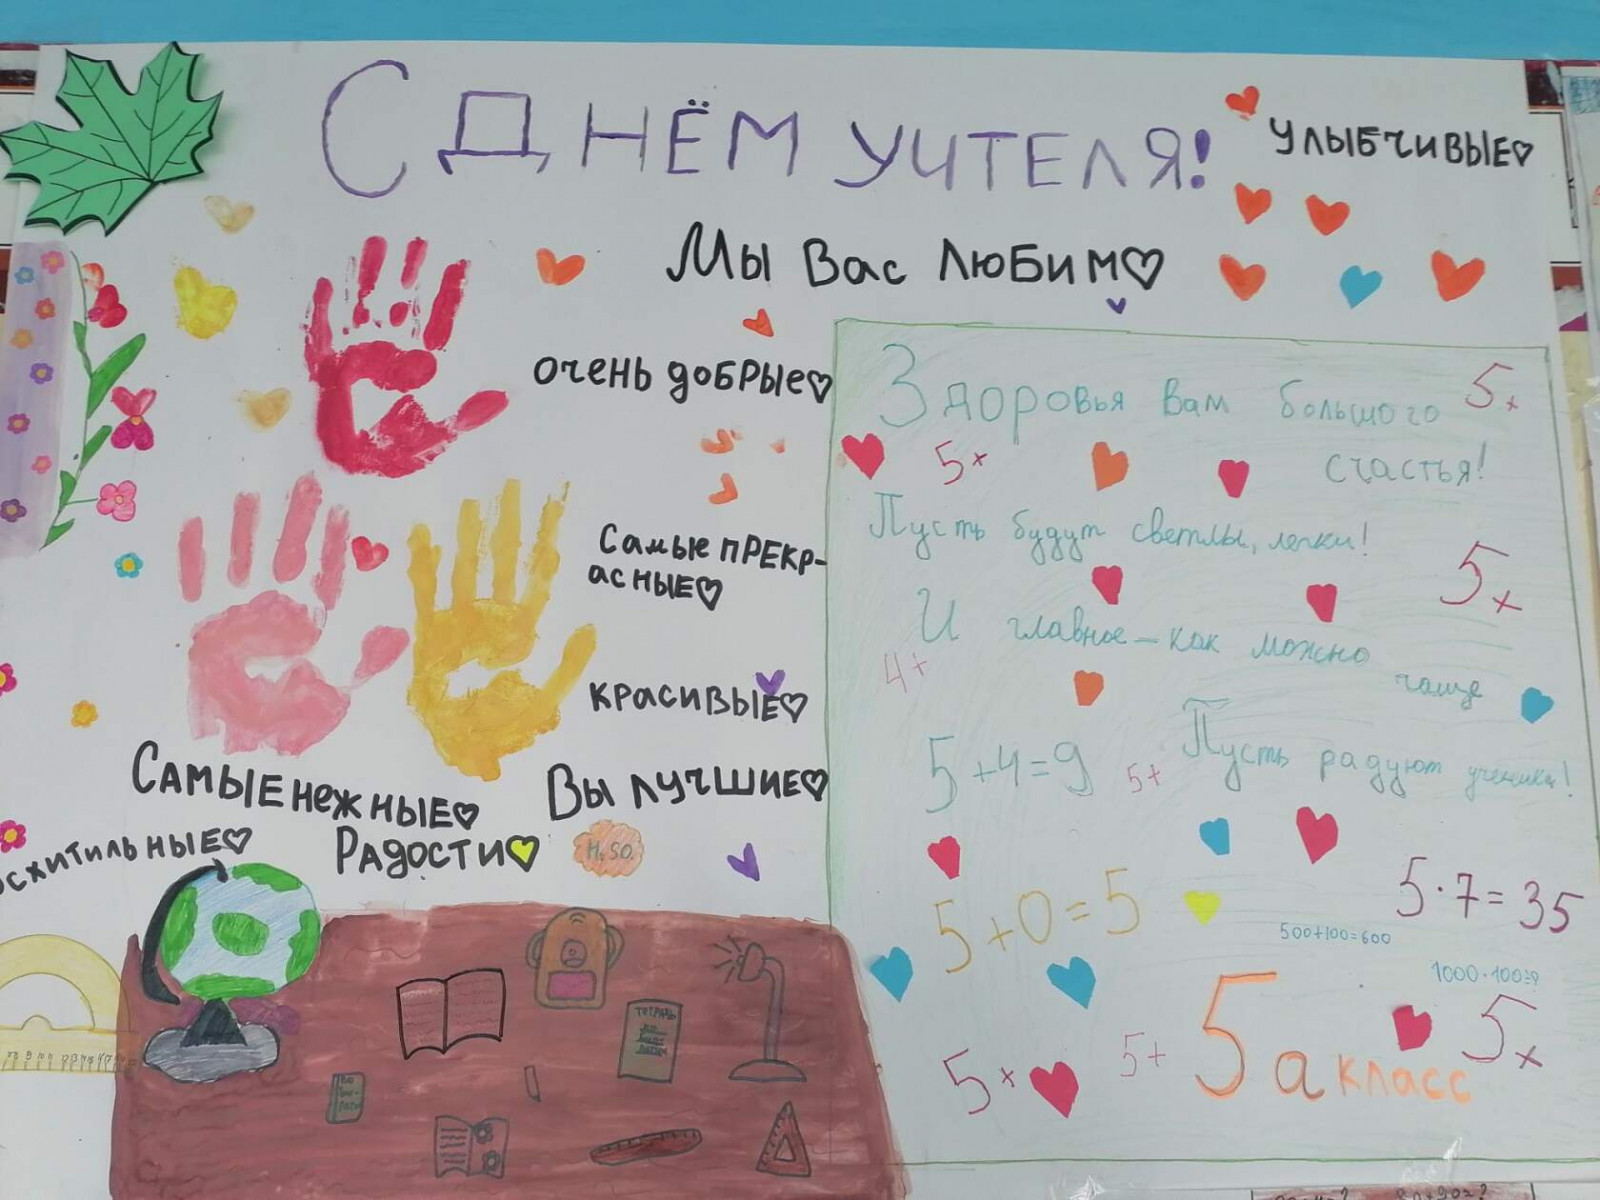 С ДНЁМ УЧИТЕЛЯ!
УЛЫБЧИВЫЕ
Мы Вас ЛЮБИМ
очень добрые
Самые ПРЕКР-
асные
красивые
Самые нежные
Вы лучшие
Радости
схитильные
H₂SO₄
Здоровья Вам большого
счастья!
Пусть будут светлы, легки!
И главное – как можно
чаще
Пусть радуют ученики!
5+
5+
5+
4+
5+4=9
5+
5+0=5
5·7=35
500+100=600
1000·100=?
5+
5+
5+
5 а класс
ТЕТРАДЬ